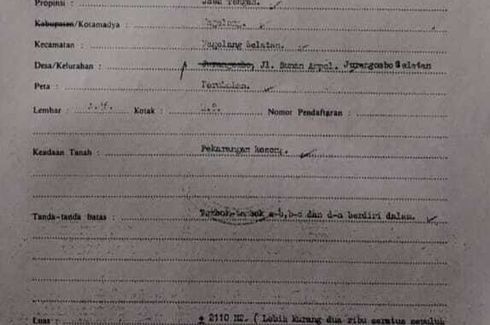 Propinsi : Jawa Tengah.
Kabupaten/Kotamadya : Magelang.
Kecamatan : Magelang Selatan.
Desa/Kelurahan : Jurangombo, Jl. Sunan Ampel. Jurangombo Selatan
Peta :
Lembar : Kotak : Nomor Pendaftaran :
Keadaan Tanah : Pekarangan kosong.
Tanda-tanda batas : Tembok-tembok a-b, b-c dan d-a berdiri dalam.
Luas : ± 2110 M2. ( Lebih kurang dua ribu seratus sepuluh